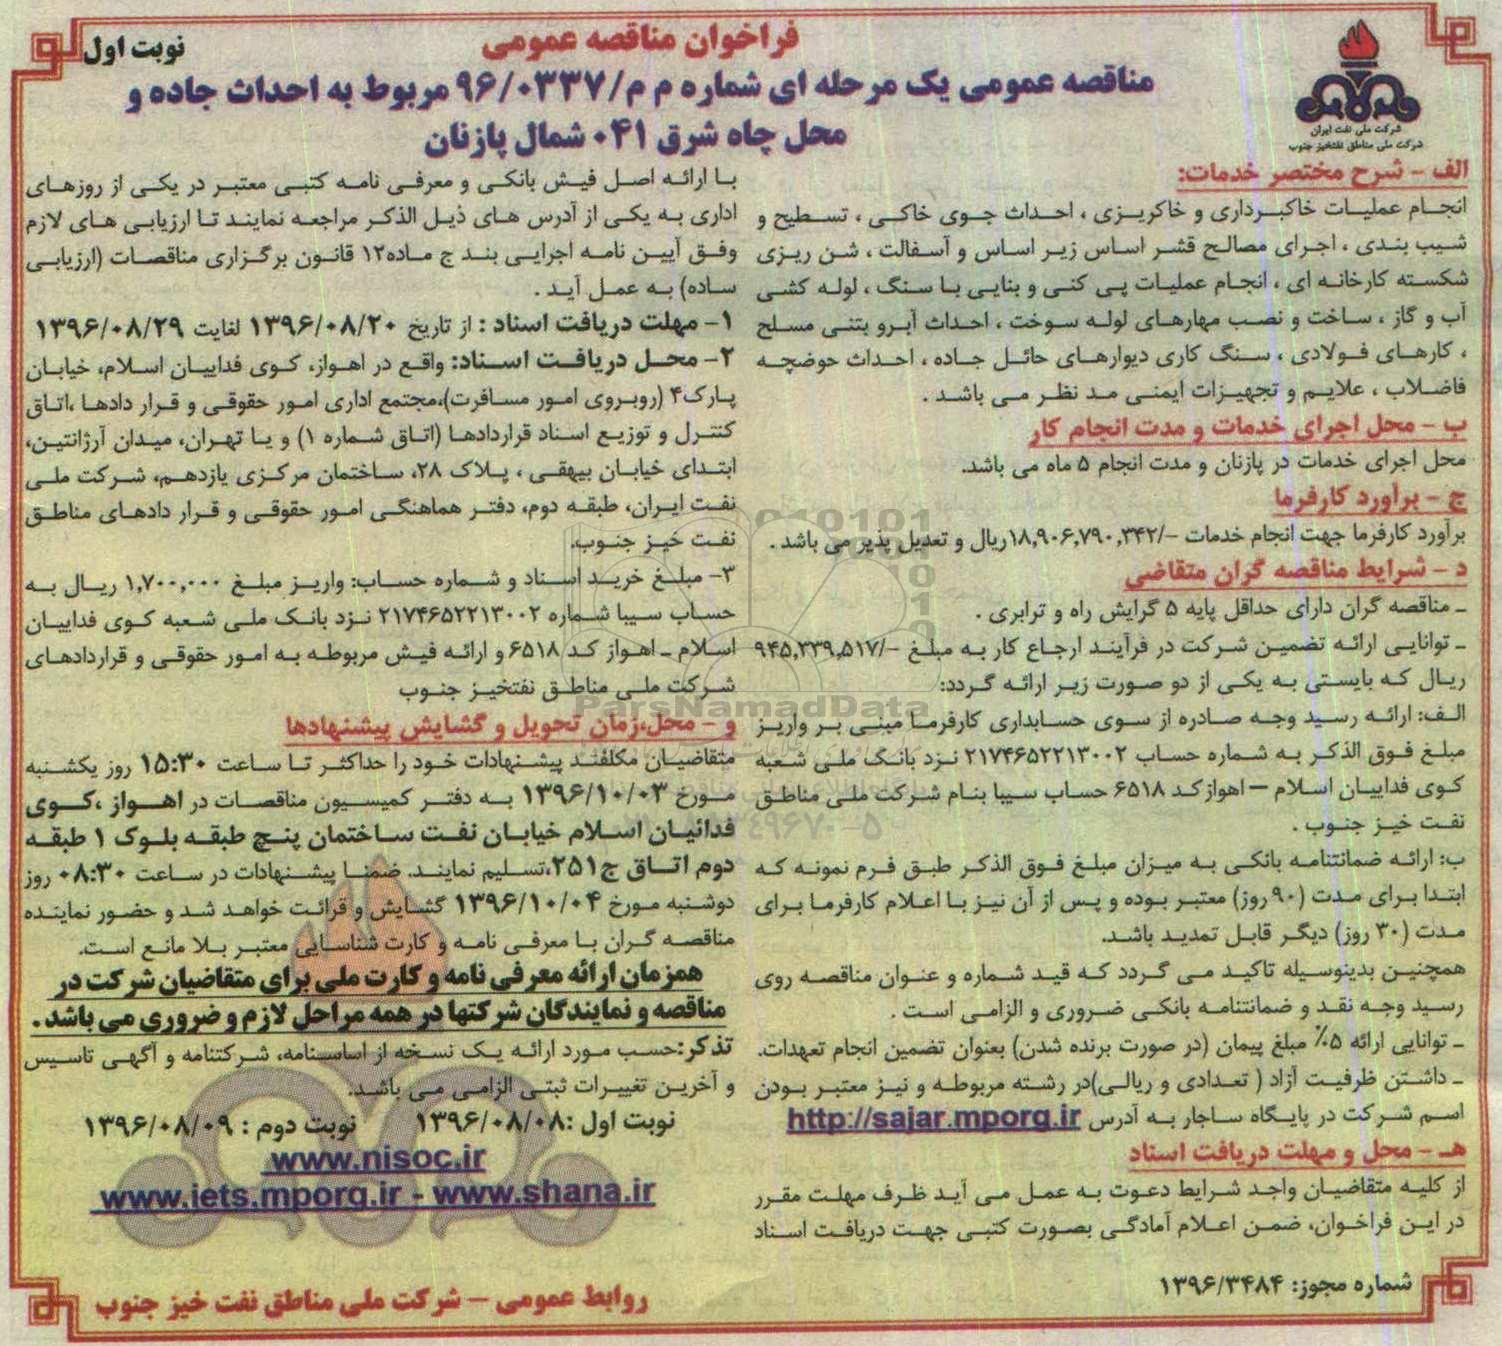 نوبت اول
فراخوان مناقصه عمومی
مناقصه عمومی یک مرحله ای شماره م م/۹۶/۰۳۳۷ مربوط به احداث جاده و
محل چاه شرق ۰۴۱ شمال پازنان
شرکت ملی نفت ایران
شرکت ملی مناطق نفتخیز جنوب
الف - شرح مختصر خدمات:
انجام عملیات خاکبرداری و خاکریزی ، احداث جوی خاکی ، تسطیح و
شیب بندی ، اجرای مصالح قشر اساس زیر اساس و آسفالت ، شن ریزی
شکسته کارخانه ای ، انجام عملیات پی کنی و بنایی با سنگ ، لوله کشی
آب و گاز ، ساخت و نصب مهارهای لوله سوخت ، احداث آبرو بتنی مسلح
، کارهای فولادی ، سنگ کاری دیوارهای حائل جاده ، احداث حوضچه
فاضلاب ، علایم و تجهیزات ایمنی مد نظر می باشد .
ب - محل اجرای خدمات و مدت انجام کار
محل اجرای خدمات در پازنان و مدت انجام ۵ ماه می باشد.
ج - برآورد کارفرما
برآورد کارفرما جهت انجام خدمات -/۱۸,۹۰۶,۷۹۰,۳۴۲ریال و تعدیل پذیر می باشد .
د - شرایط مناقصه گران متقاضی
ـ مناقصه گران دارای حداقل پایه ۵ گرایش راه و ترابری .
ـ توانایی ارائه تضمین شرکت در فرآیند ارجاع کار به مبلغ -/۹۴۵,۳۳۹,۵۱۷
ریال که بایستی به یکی از دو صورت زیر ارائه گردد:
الف: ارائه رسید وجه صادره از سوی حسابداری کارفرما مبنی بر واریز
مبلغ فوق الذکر به شماره حساب ۲۱۷۴۶۵۲۲۱۳۰۰۲ نزد بانک ملی شعبه
کوی فداییان اسلام – اهوازکد ۶۵۱۸ حساب سیبا بنام شرکت ملی مناطق
نفت خیز جنوب .
ب: ارائه ضمانتنامه بانکی به میزان مبلغ فوق الذکر طبق فرم نمونه که
ابتدا برای مدت (۹۰ روز) معتبر بوده و پس از آن نیز با اعلام کارفرما برای
مدت (۳۰ روز) دیگر قابل تمدید باشد.
همچنین بدینوسیله تاکید می گردد که قید شماره و عنوان مناقصه روی
رسید وجه نقد و ضمانتنامه بانکی ضروری و الزامی است .
ـ توانایی ارائه ۵٪ مبلغ پیمان (در صورت برنده شدن) بعنوان تضمین انجام تعهدات.
ـ داشتن ظرفیت آزاد ( تعدادی و ریالی)در رشته مربوطه و نیز معتبر بودن
اسم شرکت در پایگاه ساجار به آدرس http://sajar.mporg.ir
هـ - محل و مهلت دریافت اسناد
از کلیه متقاضیان واجد شرایط دعوت به عمل می آید ظرف مهلت مقرر
در این فراخوان، ضمن اعلام آمادگی بصورت کتبی جهت دریافت اسناد
شماره مجوز: ۱۳۹۶/۳۴۸۴
با ارائه اصل فیش بانکی و معرفی نامه کتبی معتبر در یکی از روزهای
اداری به یکی از آدرس های ذیل الذکر مراجعه نمایند تا ارزیابی های لازم
وفق آیین نامه اجرایی بند ج ماده۱۲ قانون برگزاری مناقصات (ارزیابی
ساده) به عمل آید .
۱- مهلت دریافت اسناد : از تاریخ ۱۳۹۶/۰۸/۲۰ لغایت ۱۳۹۶/۰۸/۲۹
۲- محل دریافت اسناد: واقع در اهواز، کوی فداییان اسلام، خیابان
پارک۴ (روبروی امور مسافرت)،مجتمع اداری امور حقوقی و قرار دادها ،اتاق
کنترل و توزیع اسناد قراردادها (اتاق شماره ۱) و یا تهران، میدان آرژانتین،
ابتدای خیابان بیهقی ، پلاک ۲۸، ساختمان مرکزی یازدهم، شرکت ملی
نفت ایران، طبقه دوم، دفتر هماهنگی امور حقوقی و قرار دادهای مناطق
نفت خیز جنوب.
۳- مبلغ خرید اسناد و شماره حساب: واریز مبلغ ۱,۷۰۰,۰۰۰ ریال به
حساب سیبا شماره ۲۱۷۴۶۵۲۲۱۳۰۰۲ نزد بانک ملی شعبه کوی فداییان
اسلام ـ اهواز کد ۶۵۱۸ و ارائه فیش مربوطه به امور حقوقی و قراردادهای
شرکت ملی مناطق نفتخیز جنوب
و - محل،زمان تحویل و گشایش پیشنهادها
متقاضیان مکلفند پیشنهادات خود را حداکثر تا ساعت ۱۵:۳۰ روز یکشنبه
مورخ ۱۳۹۶/۱۰/۰۳ به دفتر کمیسیون مناقصات در اهواز ،کوی
فدائیان اسلام خیابان نفت ساختمان پنج طبقه بلوک ۱ طبقه
دوم اتاق ج۲۵۱،تسلیم نمایند. ضمنا پیشنهادات در ساعت ۰۸:۳۰ روز
دوشنبه مورخ ۱۳۹۶/۱۰/۰۴ گشایش و قرائت خواهد شد و حضور نماینده
مناقصه گران با معرفی نامه و کارت شناسایی معتبر بلا مانع است.
همزمان ارائه معرفی نامه و کارت ملی برای متقاضیان شرکت در
مناقصه و نمایندگان شرکتها در همه مراحل لازم و ضروری می باشد .
تذکر:حسب مورد ارائه یک نسخه از اساسنامه، شرکتنامه و آگهی تاسیس
و آخرین تغییرات ثبتی الزامی می باشد.
نوبت اول :۱۳۹۶/۰۸/۰۸ نوبت دوم : ۱۳۹۶/۰۸/۰۹
www.nisoc.ir
www.iets.mporg.ir - www.shana.ir
روابط عمومی – شرکت ملی مناطق نفت خیز جنوب
ParsNamadData